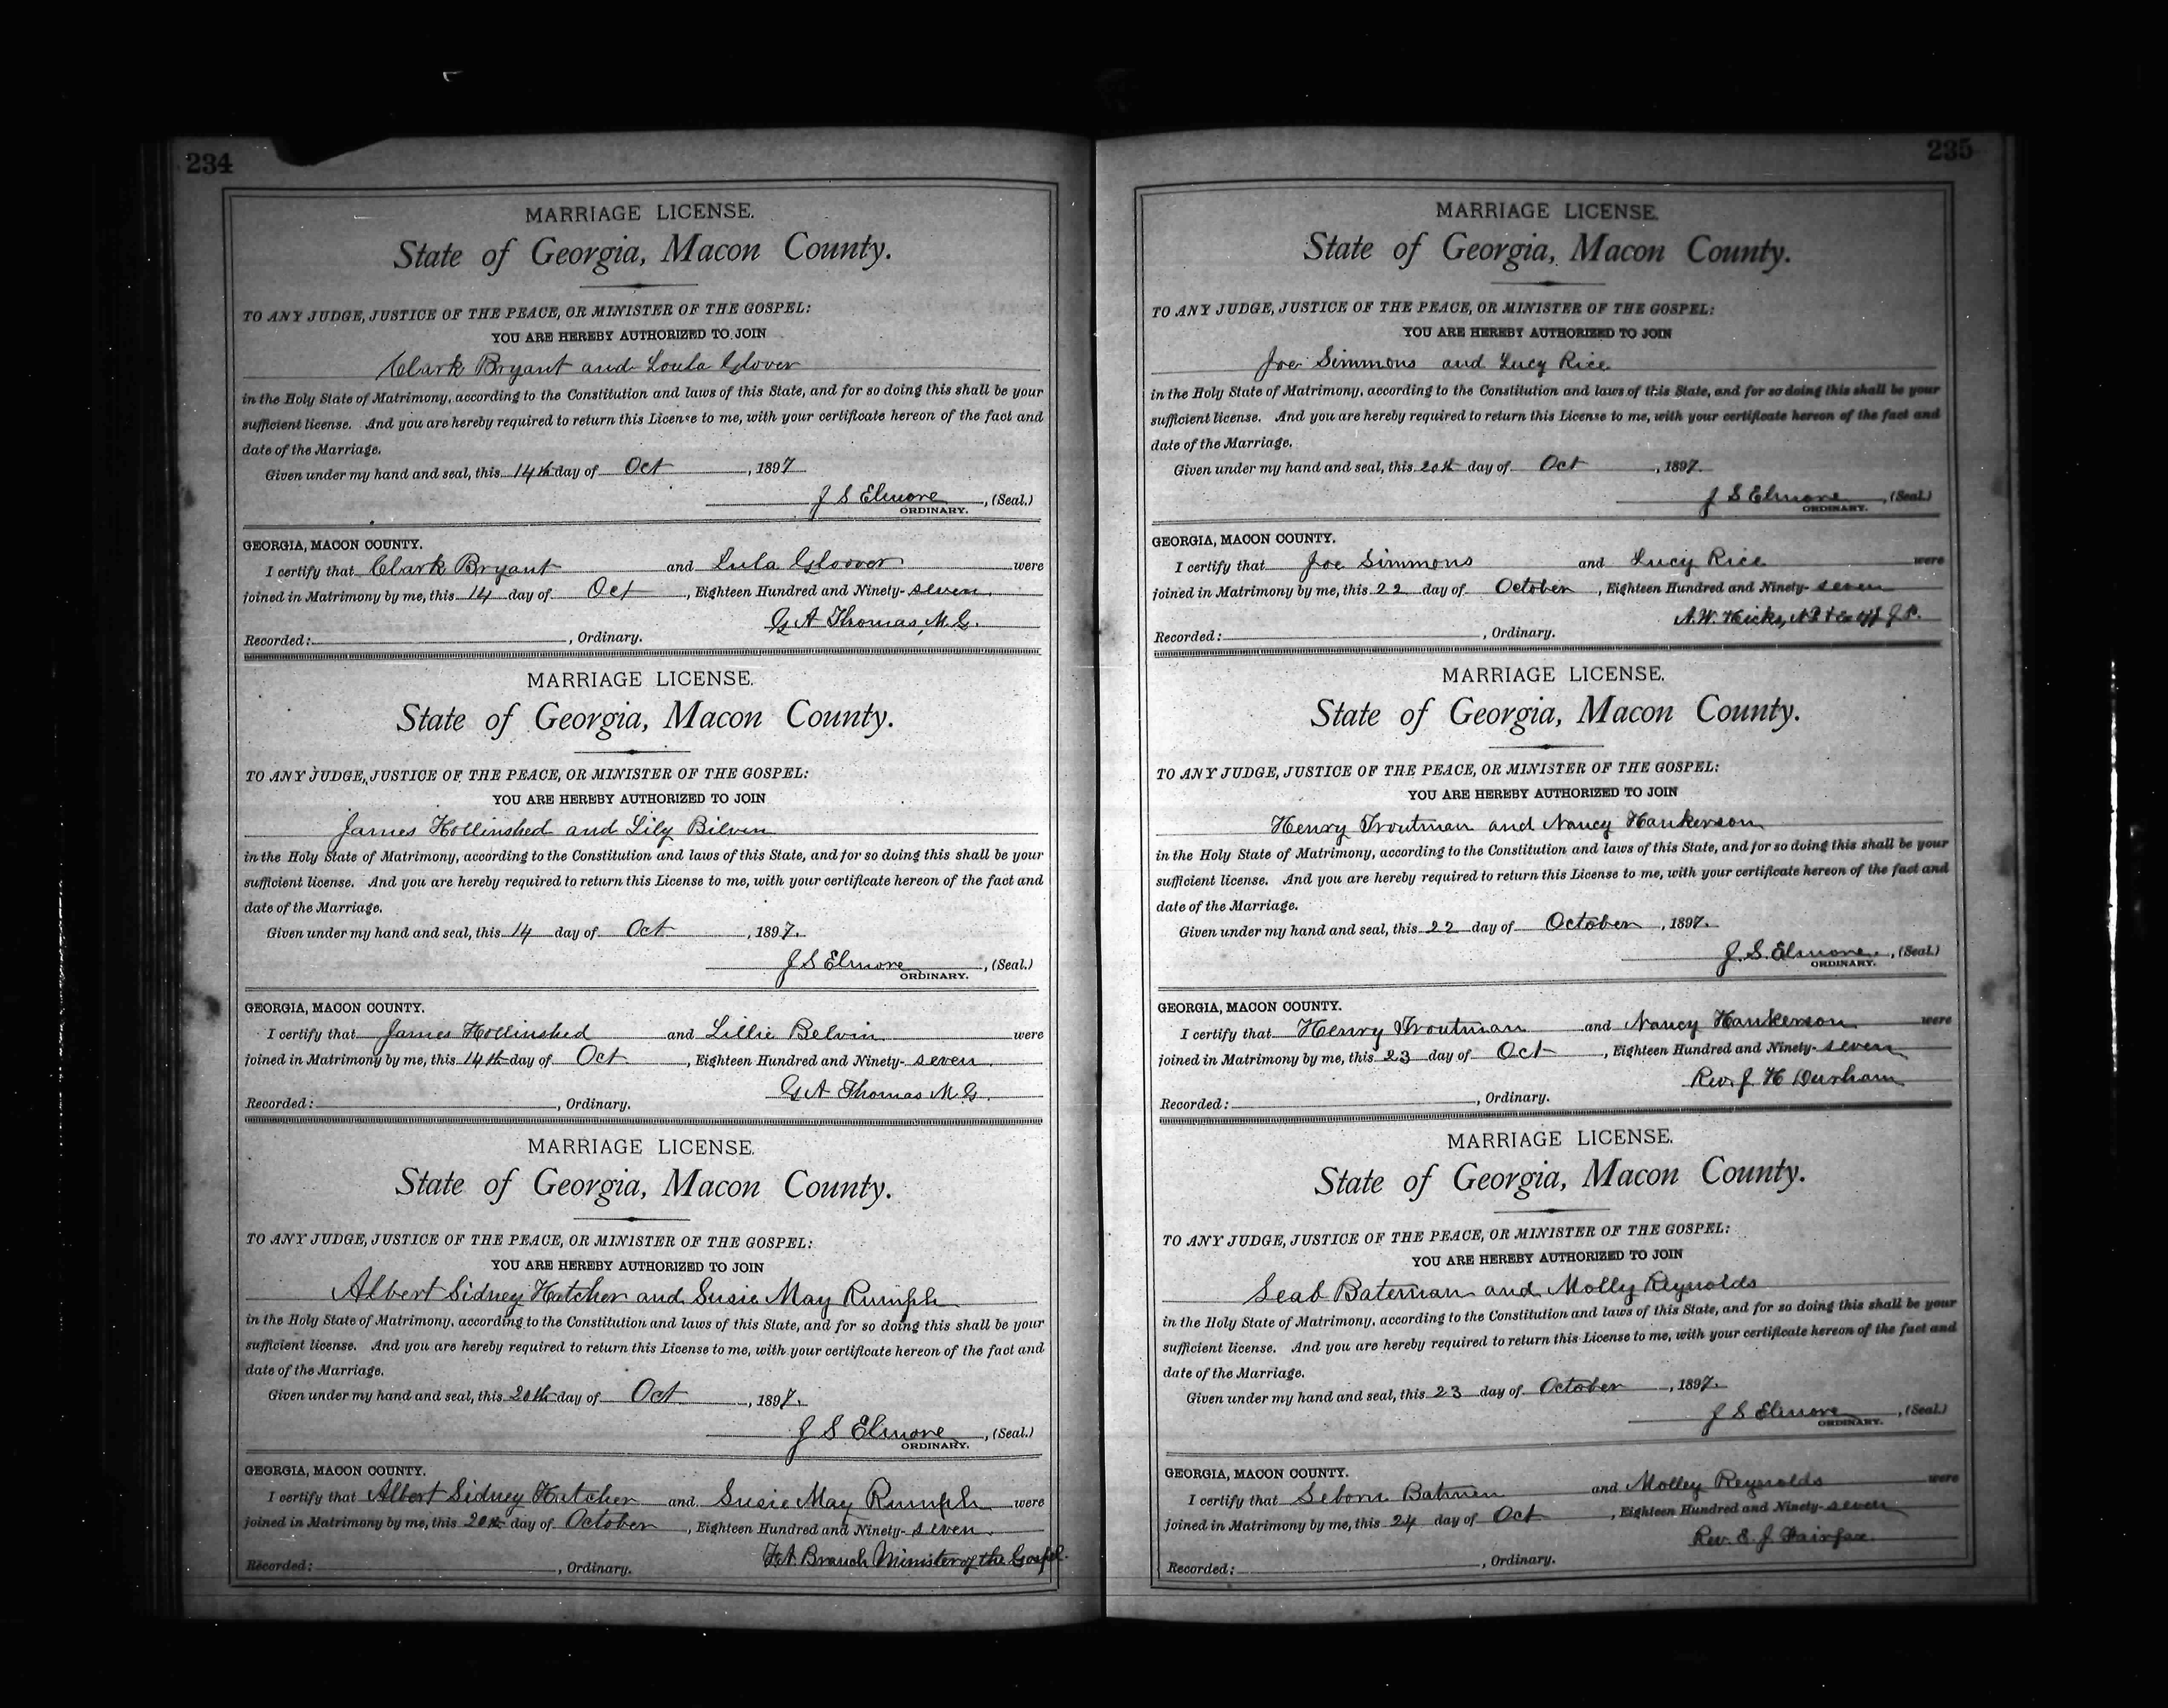 234
MARRIAGE LICENSE.
State of Georgia, Macon County.
TO ANY JUDGE, JUSTICE OF THE PEACE, OR MINISTER OF THE GOSPEL:
YOU ARE HEREBY AUTHORIZED TO JOIN
Clark Bryant and Loula Glover
in the Holy State of Matrimony, according to the Constitution and laws of this State, and for so doing this shall be your
sufficient license. And you are hereby required to return this License to me, with your certificate hereon of the fact and
date of the Marriage.
Given under my hand and seal, this 14th day of Oct, 1897
J S Elmore, (Seal.)
ORDINARY.
GEORGIA, MACON COUNTY.
I certify that Clark Bryant and Lula Gloover were
joined in Matrimony by me, this 14 day of Oct, Eighteen Hundred and Ninety-seven.
G A Thomas, M.G.
Recorded: , Ordinary.
MARRIAGE LICENSE.
State of Georgia, Macon County.
TO ANY JUDGE, JUSTICE OF THE PEACE, OR MINISTER OF THE GOSPEL:
YOU ARE HEREBY AUTHORIZED TO JOIN
James Hollinshed and Lily Bilvin
in the Holy State of Matrimony, according to the Constitution and laws of this State, and for so doing this shall be your
sufficient license. And you are hereby required to return this License to me, with your certificate hereon of the fact and
date of the Marriage.
Given under my hand and seal, this 14 day of Oct, 1897.
J S Elmore, (Seal.)
ORDINARY.
GEORGIA, MACON COUNTY.
I certify that James Hollinshed and Lillie Belvin were
joined in Matrimony by me, this 14th day of Oct, Eighteen Hundred and Ninety-seven.
G A Thomas M.G.
Recorded: , Ordinary.
MARRIAGE LICENSE.
State of Georgia, Macon County.
TO ANY JUDGE, JUSTICE OF THE PEACE, OR MINISTER OF THE GOSPEL:
YOU ARE HEREBY AUTHORIZED TO JOIN
Albert Sidney Hatcher and Susie May Rumph
in the Holy State of Matrimony, according to the Constitution and laws of this State, and for so doing this shall be your
sufficient license. And you are hereby required to return this License to me, with your certificate hereon of the fact and
date of the Marriage.
Given under my hand and seal, this 20th day of Oct, 1897.
J S Elmore, (Seal.)
ORDINARY.
GEORGIA, MACON COUNTY.
I certify that Albert Sidney Hatcher and Susie May Rumph were
joined in Matrimony by me, this 20th day of October, Eighteen Hundred and Ninety-seven.
Branch Minister of the Gospel.
Recorded: , Ordinary.
235
MARRIAGE LICENSE.
State of Georgia, Macon County.
TO ANY JUDGE, JUSTICE OF THE PEACE, OR MINISTER OF THE GOSPEL:
YOU ARE HEREBY AUTHORIZED TO JOIN
Joe Simmons and Lucy Rice
in the Holy State of Matrimony, according to the Constitution and laws of this State, and for so doing this shall be your
sufficient license. And you are hereby required to return this License to me, with your certificate hereon of the fact and
date of the Marriage.
Given under my hand and seal, this 20th day of Oct, 1897.
J S Elmore, (Seal.)
ORDINARY.
GEORGIA, MACON COUNTY.
I certify that Joe Simmons and Lucy Rice were
joined in Matrimony by me, this 22 day of October, Eighteen Hundred and Ninety-seven
A.W. Hicks, J.P.
Recorded: , Ordinary.
MARRIAGE LICENSE.
State of Georgia, Macon County.
TO ANY JUDGE, JUSTICE OF THE PEACE, OR MINISTER OF THE GOSPEL:
YOU ARE HEREBY AUTHORIZED TO JOIN
Henry Troutman and Nancy Hankerson
in the Holy State of Matrimony, according to the Constitution and laws of this State, and for so doing this shall be your
sufficient license. And you are hereby required to return this License to me, with your certificate hereon of the fact and
date of the Marriage.
Given under my hand and seal, this 22 day of October, 1897.
J. S. Elmore, (Seal.)
ORDINARY.
GEORGIA, MACON COUNTY.
I certify that Henry Troutman and Nancy Hankerson were
joined in Matrimony by me, this 23 day of Oct, Eighteen Hundred and Ninety-seven
Rev. J H Durham
Recorded: , Ordinary.
MARRIAGE LICENSE.
State of Georgia, Macon County.
TO ANY JUDGE, JUSTICE OF THE PEACE, OR MINISTER OF THE GOSPEL:
YOU ARE HEREBY AUTHORIZED TO JOIN
Seab Bateman and Molly Reynolds
in the Holy State of Matrimony, according to the Constitution and laws of this State, and for so doing this shall be your
sufficient license. And you are hereby required to return this License to me, with your certificate hereon of the fact and
date of the Marriage.
Given under my hand and seal, this 23 day of October, 1897.
J S Elmore, (Seal.)
ORDINARY.
GEORGIA, MACON COUNTY.
I certify that Seborn and Molley Reynolds were
joined in Matrimony by me, this 24 day of Oct, Eighteen Hundred and Ninety-seven
Rev. E. J. Fairfax
Recorded: , Ordinary.